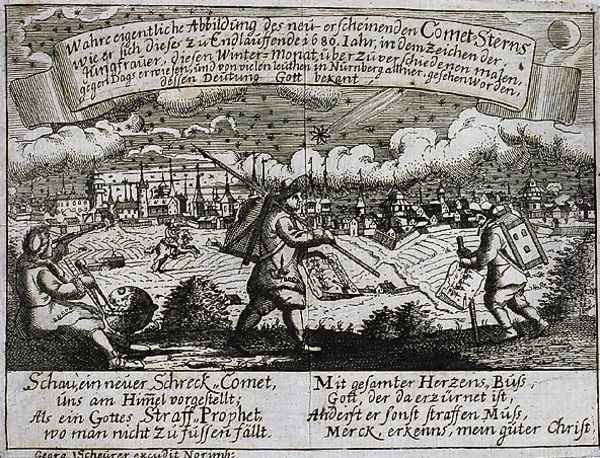 Wahre eigentliche Abbildung des neu-erscheinenden Comet-Sterns
wie er sich dieses zu Endlauffende 1686. Jahr, in dem zeichen der
Jungfrauen, diesen Winter-Monat über zu verschiedenen malen,
gegen Dags erwiesen, und von vielen leuthen in Nürnberg allhier, gesehen worden,
dessen Deutung Gott bekent
Schau, ein neuer Schreck-Comet,
uns am Himel vorgestellt;
Als ein Gottes Straff-Prophet,
wo man nicht zu füssen fällt.
Mit gesamter Herzens-Büss,
Gott, der da erzürnet ist,
Anderst er sonst straffen Müss,
Merck, erkenns, mein güter Christ.
Georg Scheürer excudit Norimb: